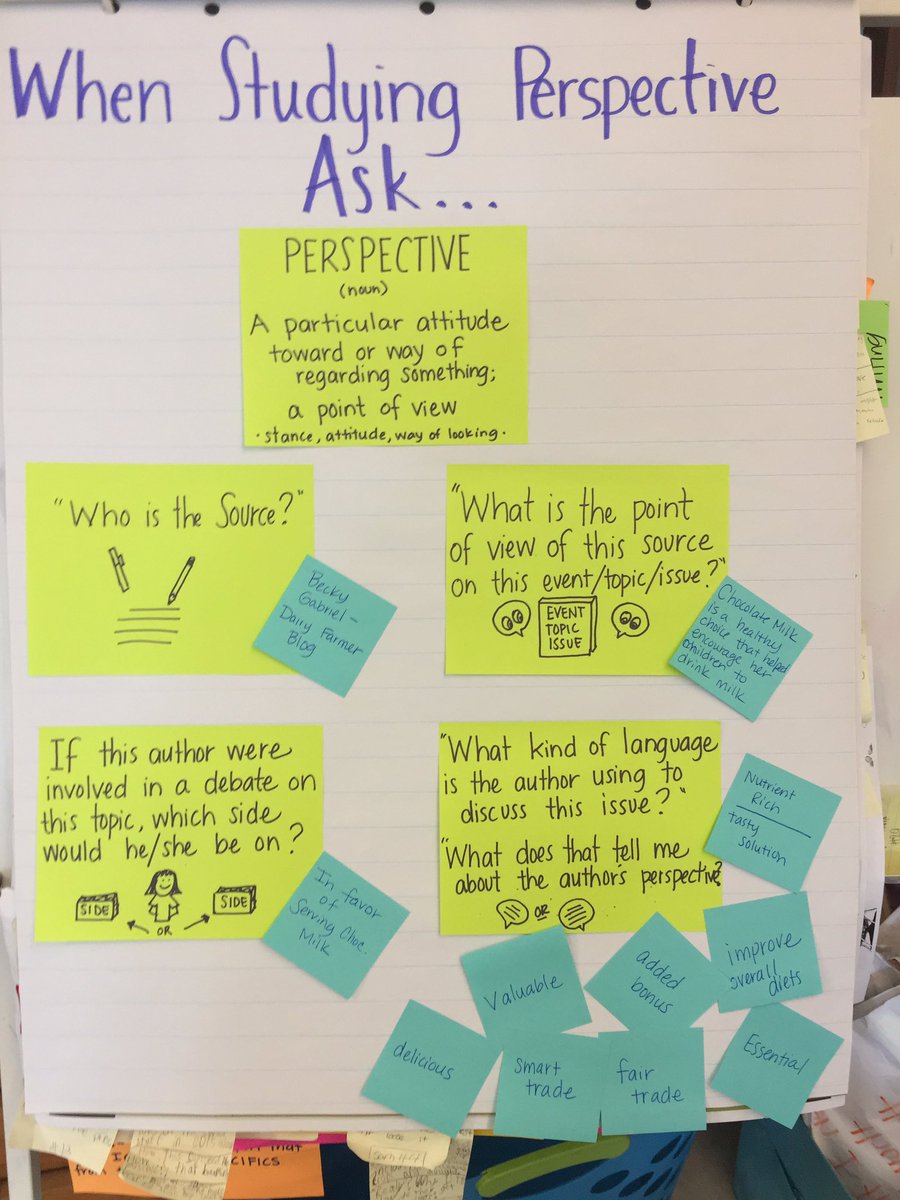 When Studying Perspective
Ask...
PERSPECTIVE
(noun)
A particular attitude
toward or way of
regarding something;
a point of view
· stance, attitude, way of looking ·
"Who is the Source?"
Becky
Gabriel -
Dairy Farmer
Blog
"What is the point
of view of this source
on this event/topic/issue?"
EVENT
TOPIC
ISSUE
Chocolate Milk
is a healthy
choice that helped
encourage her
children to
drink milk
If this author were
involved in a debate on
this topic, which side
would he/she be on?
SIDE
OR
SIDE
In favor
of
Serving Choc.
Milk
"What kind of language
is the author using to
discuss this issue?"
"What does that tell me
about the author's perspective?
OR
Nutrient
Rich
tasty
solution
Valuable
added
bonus
improve
overall
diets
delicious
smart
trade
fair
trade
Essential
that
CIFICS
from